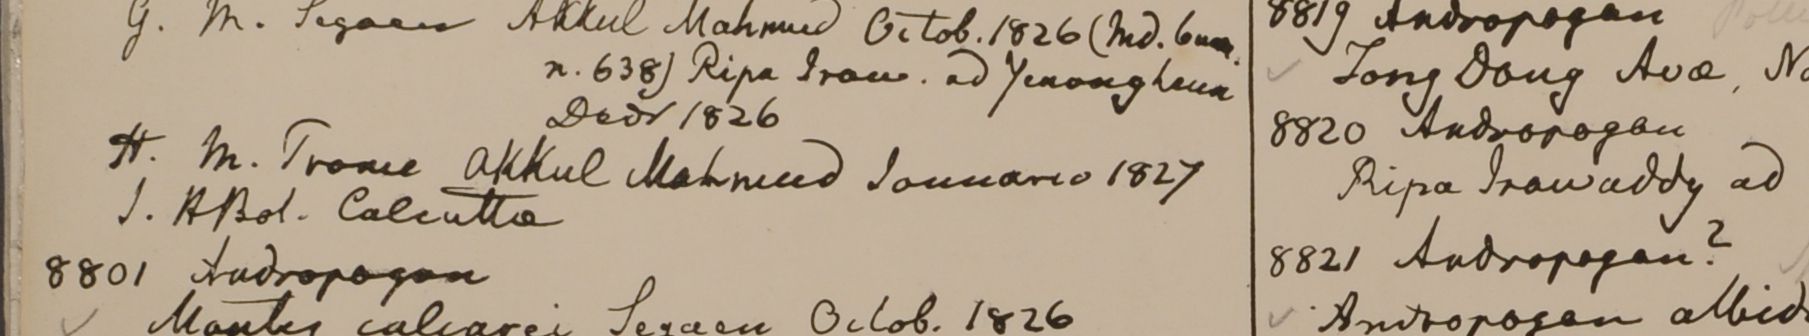 G. M. Segaen Akkul Mahmud Octob. 1826 (Md. burm.
n. 638) Ripa Iraw. ad Yenangheun
Decbr 1826
H. M. Trome Akkul Mahmud Januario 1827
I. HBot. Calcutta
8801 Andropogon
Montes calcarei Segaen Octob. 1826
8819 Andropogon
Tong Dong Avæ, No
8820 Andropogon
Ripa Irawaddy ad
8821 Andropogon?
Andropogon albid